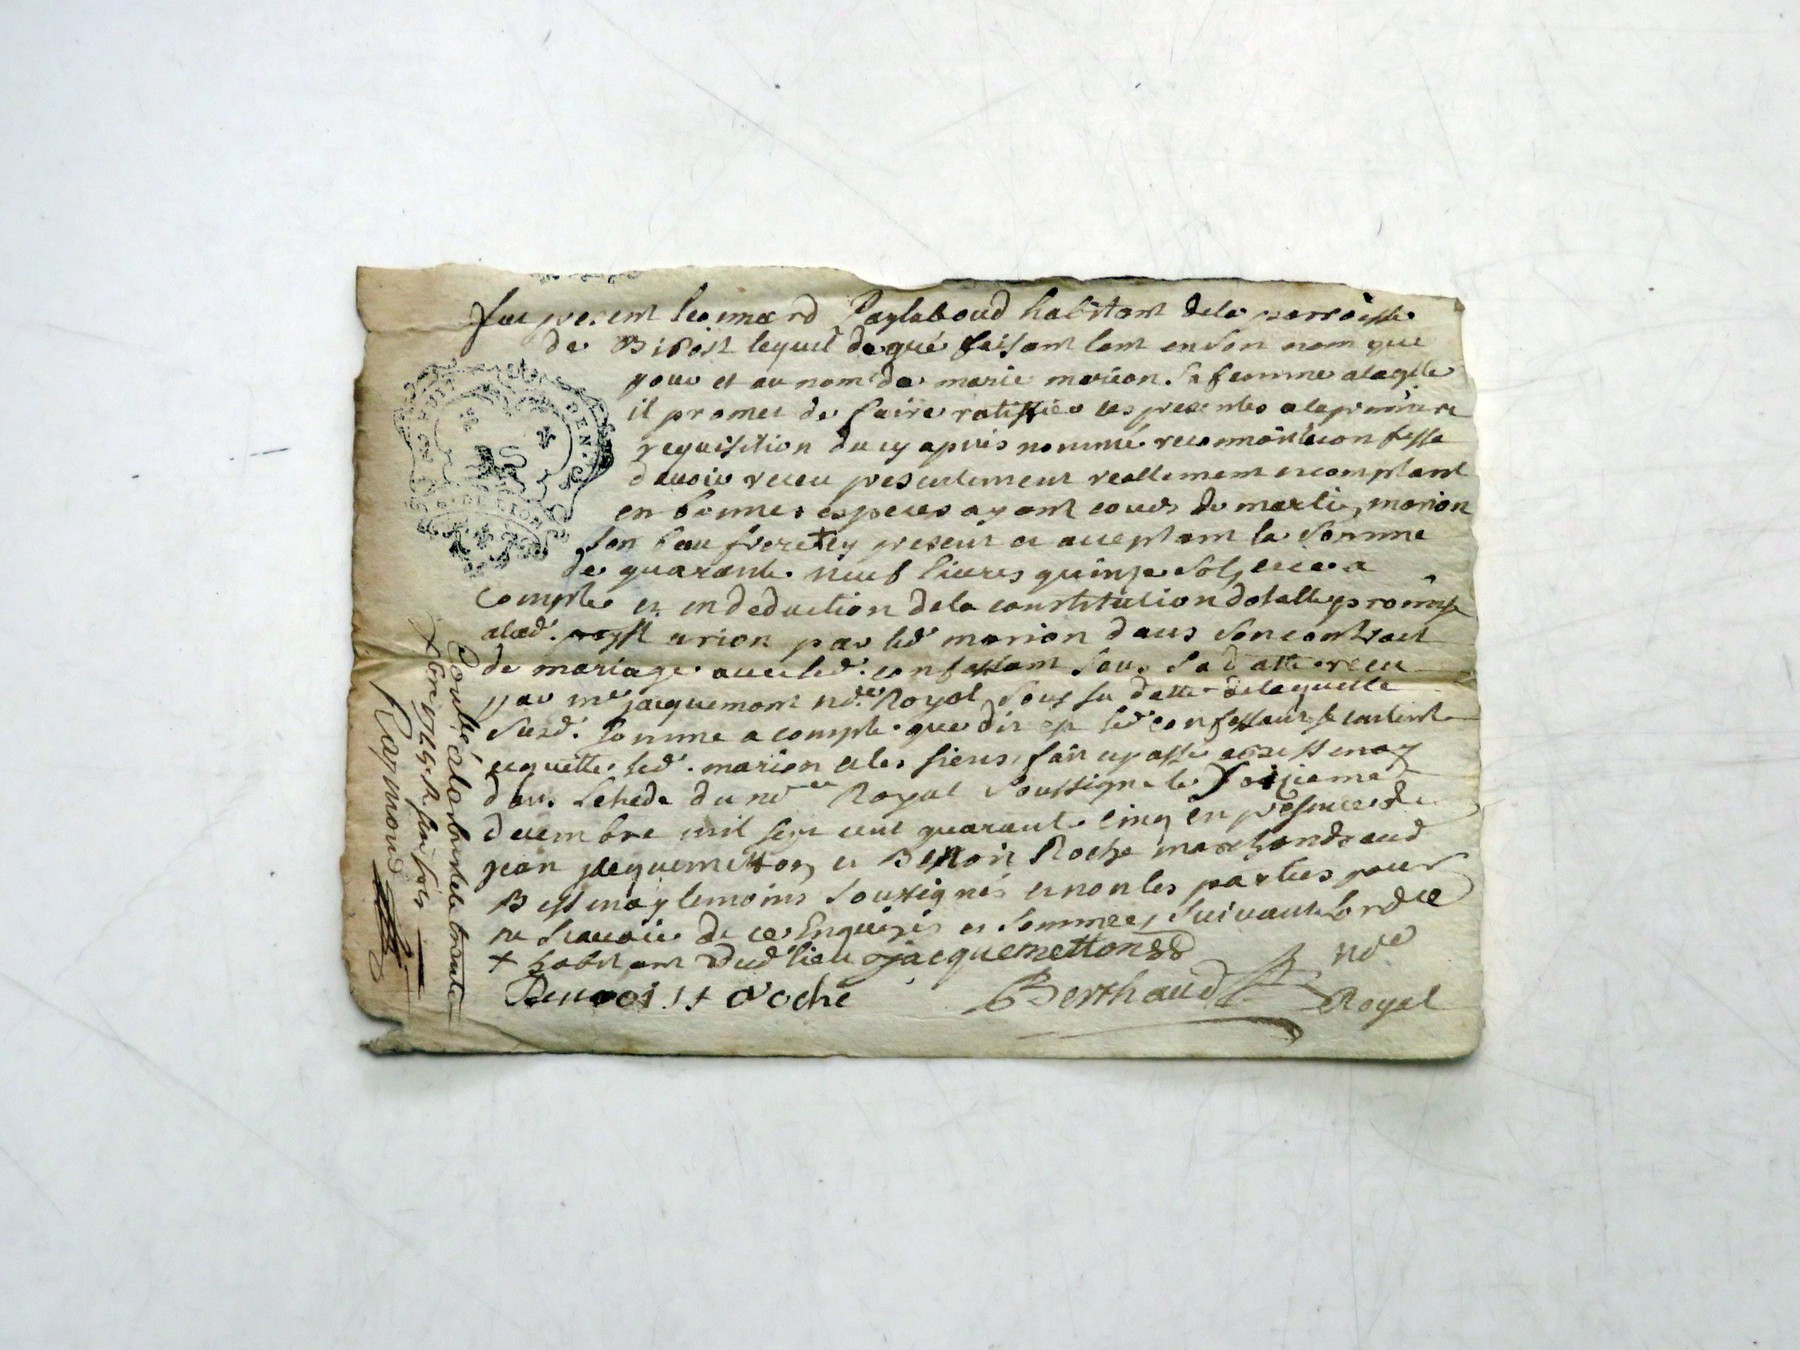 fut present leonnard habitant de la parroisse
de Bibost lequel de gré faisant tant en son nom que
pour et au nom de marie marion sa femme a laqlle
il promet de faire ratiffier ces presentes a la premiere
requisition du cy apres nommé reconnoit et confesse
davoir receu presentement reellement et comptant
en bonnes especes ayant cours de marion
son beau frere + cy present et acceptant la somme
de quarante neuf livres quinze sols, et ce a
compte et en deduction de la constitution dotalle promise
a lad. marion par led. marion dans son contract
de mariage avec led. confessant sous sa datte receu
par me jacquemont nore. Royal, sous sa datte de laquelle
susd. somme a compte que dit est led. confessant se contente
et quitte led. marion et les siens, fait et passé a Bessenay
dans letude du nore Royal soussigne le seizieme
decembre mil sept cent quarante cinq en presence de
jean jacquemetton, et Benoit Roche marchands aud
Bessenay temoins soussignés et non les parties pour
ne scavoir de ce Enquises et sommées, suivant lordce
+ habitant dud. lieu jacquemetton
Benoist roche Berthaud nore
Royal
Controllé a larbresle le trente
Xbre 1745. R. six sols
Raymond